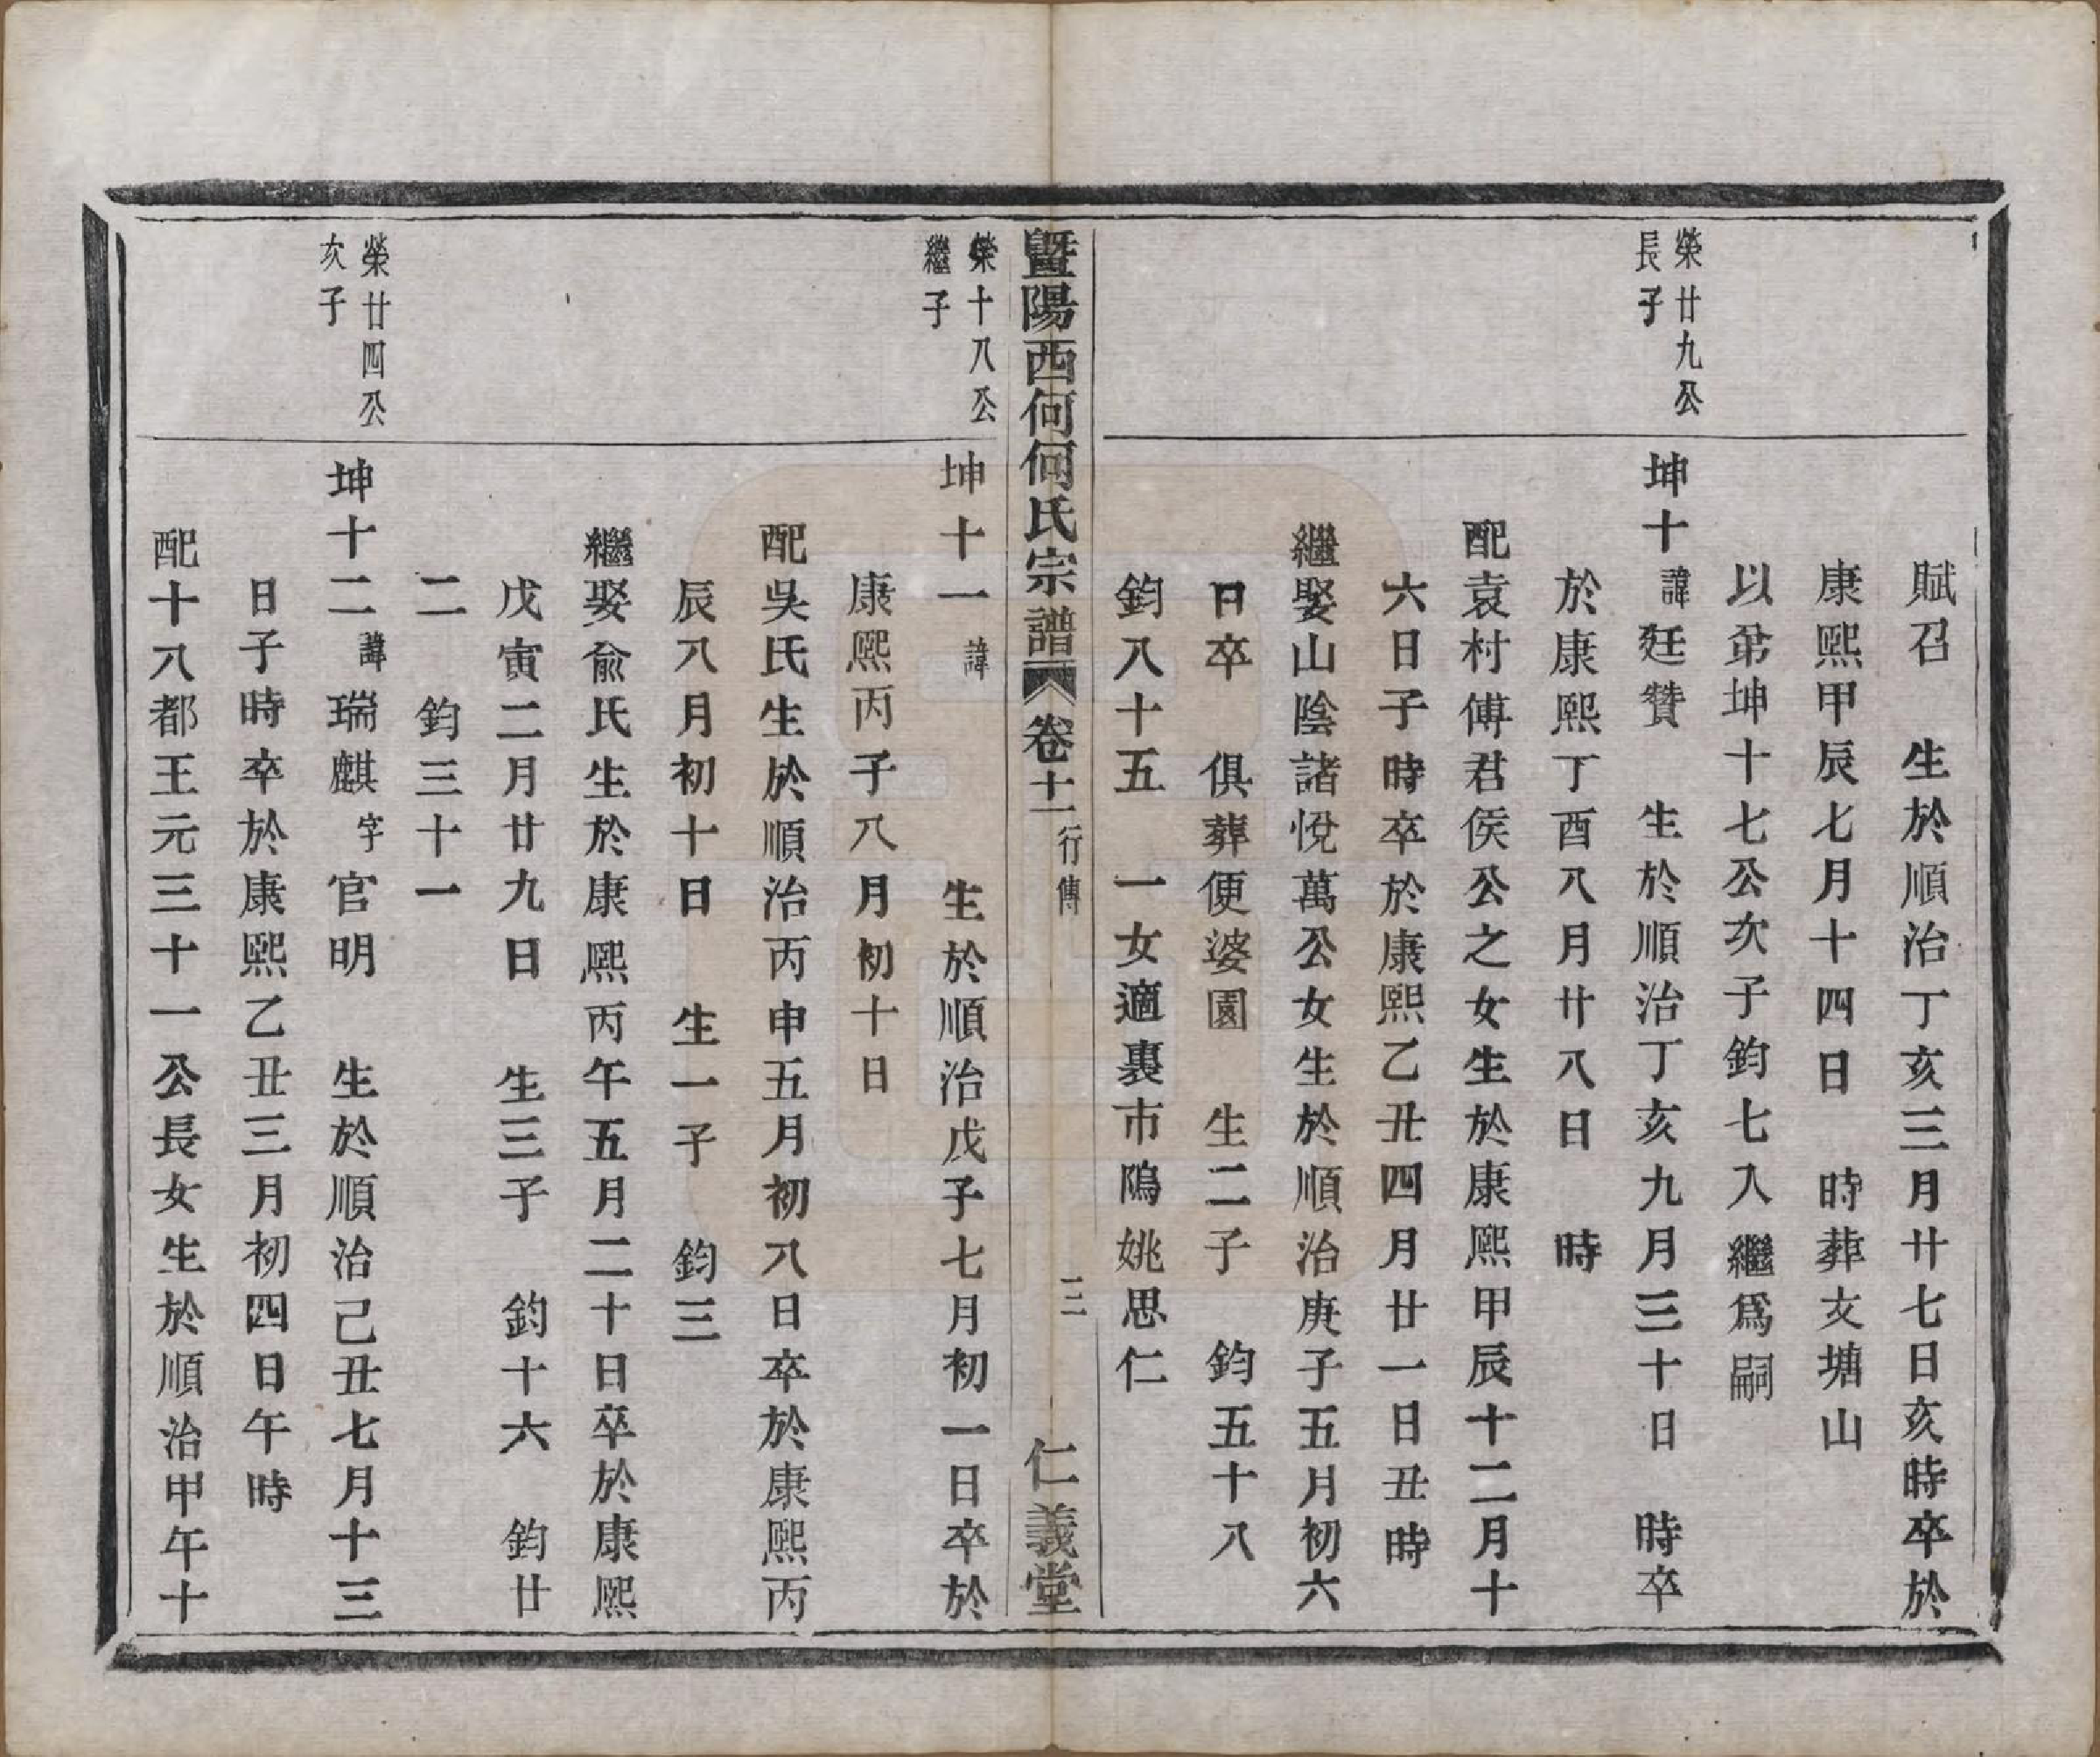 賦召　生於順治丁亥三月廿七日亥時卒於
康熙甲辰七月十四日　時葬文塘山
以弟坤十七公次子鈞七入繼爲嗣
榮廿九公
長子
坤十諱廷贊　生於順治丁亥九月三十日　時卒
於康熙丁酉八月廿八日　時
配袁村傅君侯公之女生於康熙甲辰十二月十
六日子時卒於康熙乙丑四月廿一日丑時
繼娶山陰諸悅萬公女生於順治庚子五月初六
日卒　俱葬便婆園　生二子　鈞五十八
鈞八十五　一女適裏市隖姚思仁
暨陽西何何氏宗譜　卷十一　行傳　三　仁義堂
榮十八公
繼子
坤十一諱　　生於順治戊子七月初一日卒於
康熙丙子八月初十日
配吳氏生於順治丙申五月初八日卒於康熙丙
辰八月初十日　生一子　鈞三
繼娶俞氏生於康熙丙午五月二十日卒於康熙
戊寅二月廿九日　生三子　鈞十六　鈞廿
二　鈞三十一
榮廿四公
次子
坤十二諱瑞麒字官明　生於順治己丑七月十三
日子時卒於康熙乙丑三月初四日午時
配十八都王元三十一公長女生於順治甲午十